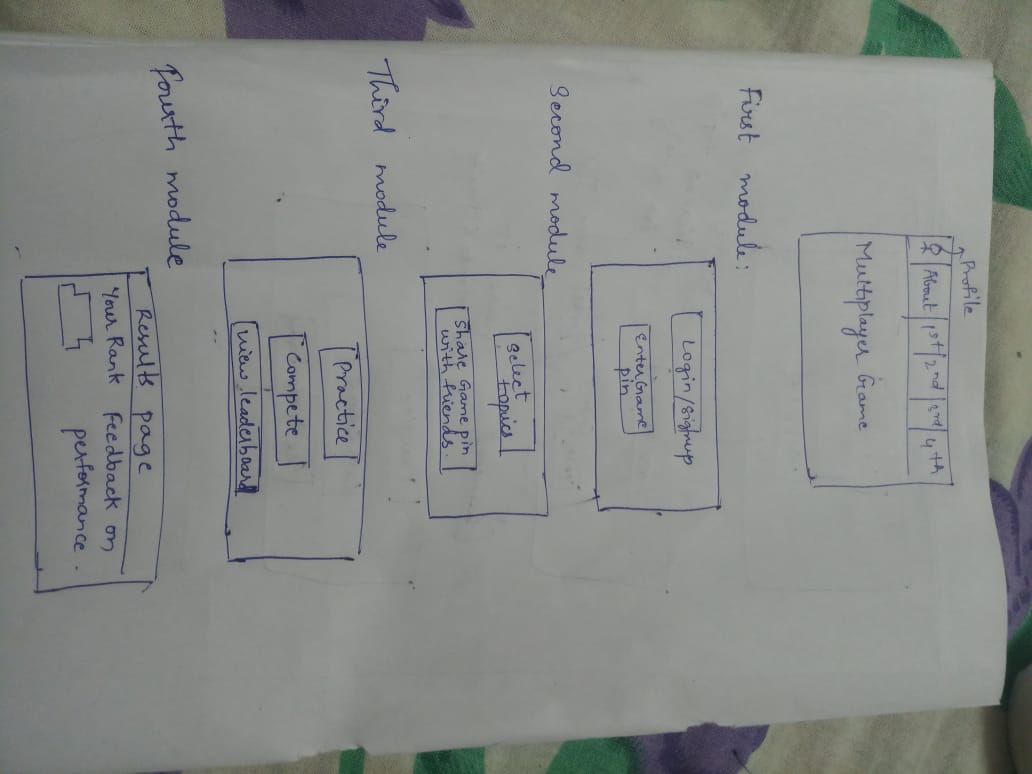 Profile
About 1st 2nd 3rd 4th
Multiplayer Game
First module:
Login/Signup
Enter Game
pin
Second module
Select
topics
Share Game pin
with friends.
Third module
Practice
Compete
View leaderboard
Fourth module
Results page
Your Rank Feedback on
performance.